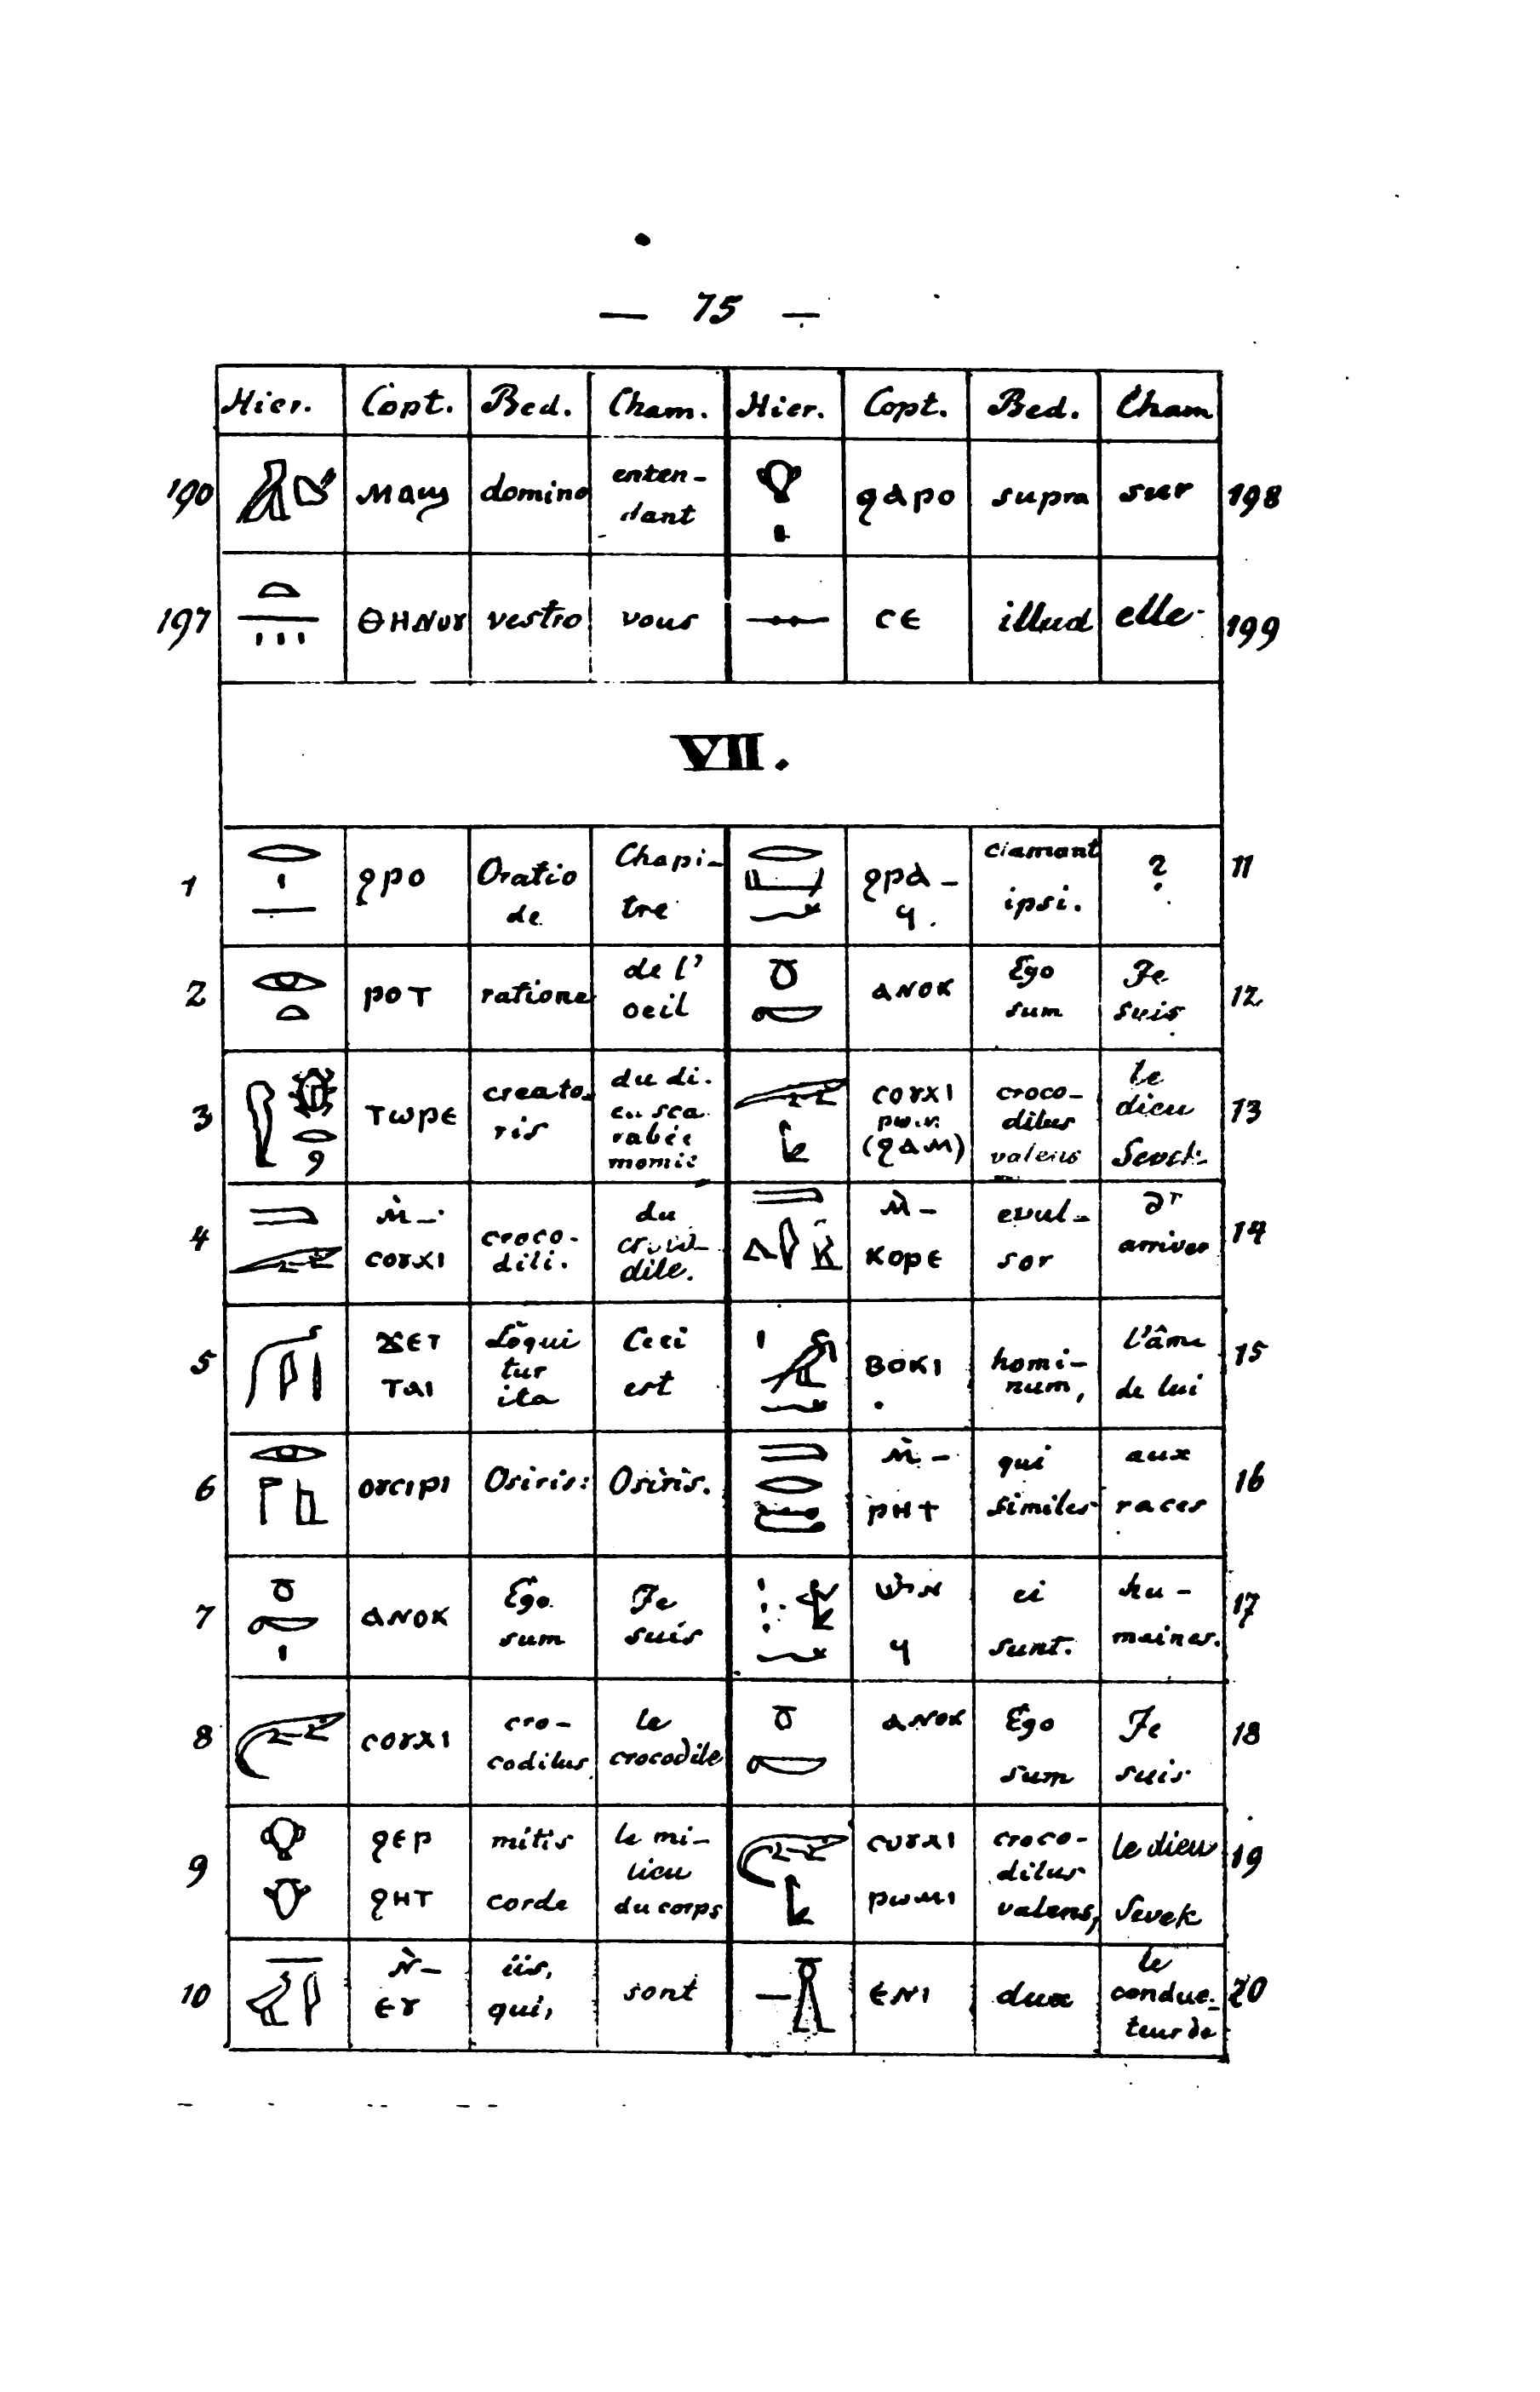 — 75 —
Hier. Copt. Bed. Cham. Hier. Copt. Bed. Cham
190 ⲙⲁϣ domino enten-
dant
ϩⲁⲣⲟ supra sur 198
197 ⲑⲏⲛⲟⲩ vestro vous
ⲥⲉ illud elle 199
VII.
1 ϩⲣⲟ Oratio
de
Chapi-
tre
ϩⲣⲁ-
ϥ.
clamant
ipsi.
? 11
2 ⲣⲟⲧ ratione de l'
oeil
ⲁⲛⲟⲕ Ego
sum
Je
suis
12
3 ⲧⲱⲣⲉ creato-
ris
du di-
eu sca
rabée
momie
ⲥⲟⲩⲭⲓ
(ϩⲁⲙ)
croco-
dilus
valens
le
dieu
Sevek
13
4 ⲙ̀-
ⲥⲟⲩⲭⲓ
croco-
dili.
du
croco-
dile.
ⲙ̀-
ⲕⲟⲣⲉ
evul-
sor
arriver
14
5 ϫⲉⲧ
ⲧⲁⲓ
Loqui
tur
ita
Ceci
est
ⲃⲟⲕⲓ homi-
num,
l'âme
de lui
15
6 ⲟⲩⲥⲓⲣⲓ Osiris: Osiris.
ⲙ̀-
ⲣⲏϯ
qui
similes
aux
races
16
7 ⲁⲛⲟⲕ Ego
sum
Je
suis
ϥ
ei
sunt.
hu-
maines.
17
8 ⲥⲟⲩⲭⲓ cro-
codilus
le
crocodile
ⲁⲛⲟⲕ Ego
sum
Je
suis
18
9 ϩⲉⲣ
ϩⲏⲧ
mitis
corde
le mi-
lieu
du corps
ⲥⲟⲩⲭⲓ
ⲣⲱⲙⲓ
croco-
dilus
valens,
le dieu
Sevek
19
10 ⲛ̀-
ⲉⲩ
iis,
qui,
sont
ⲉⲛⲓ dux le
conduc-
teur de
20